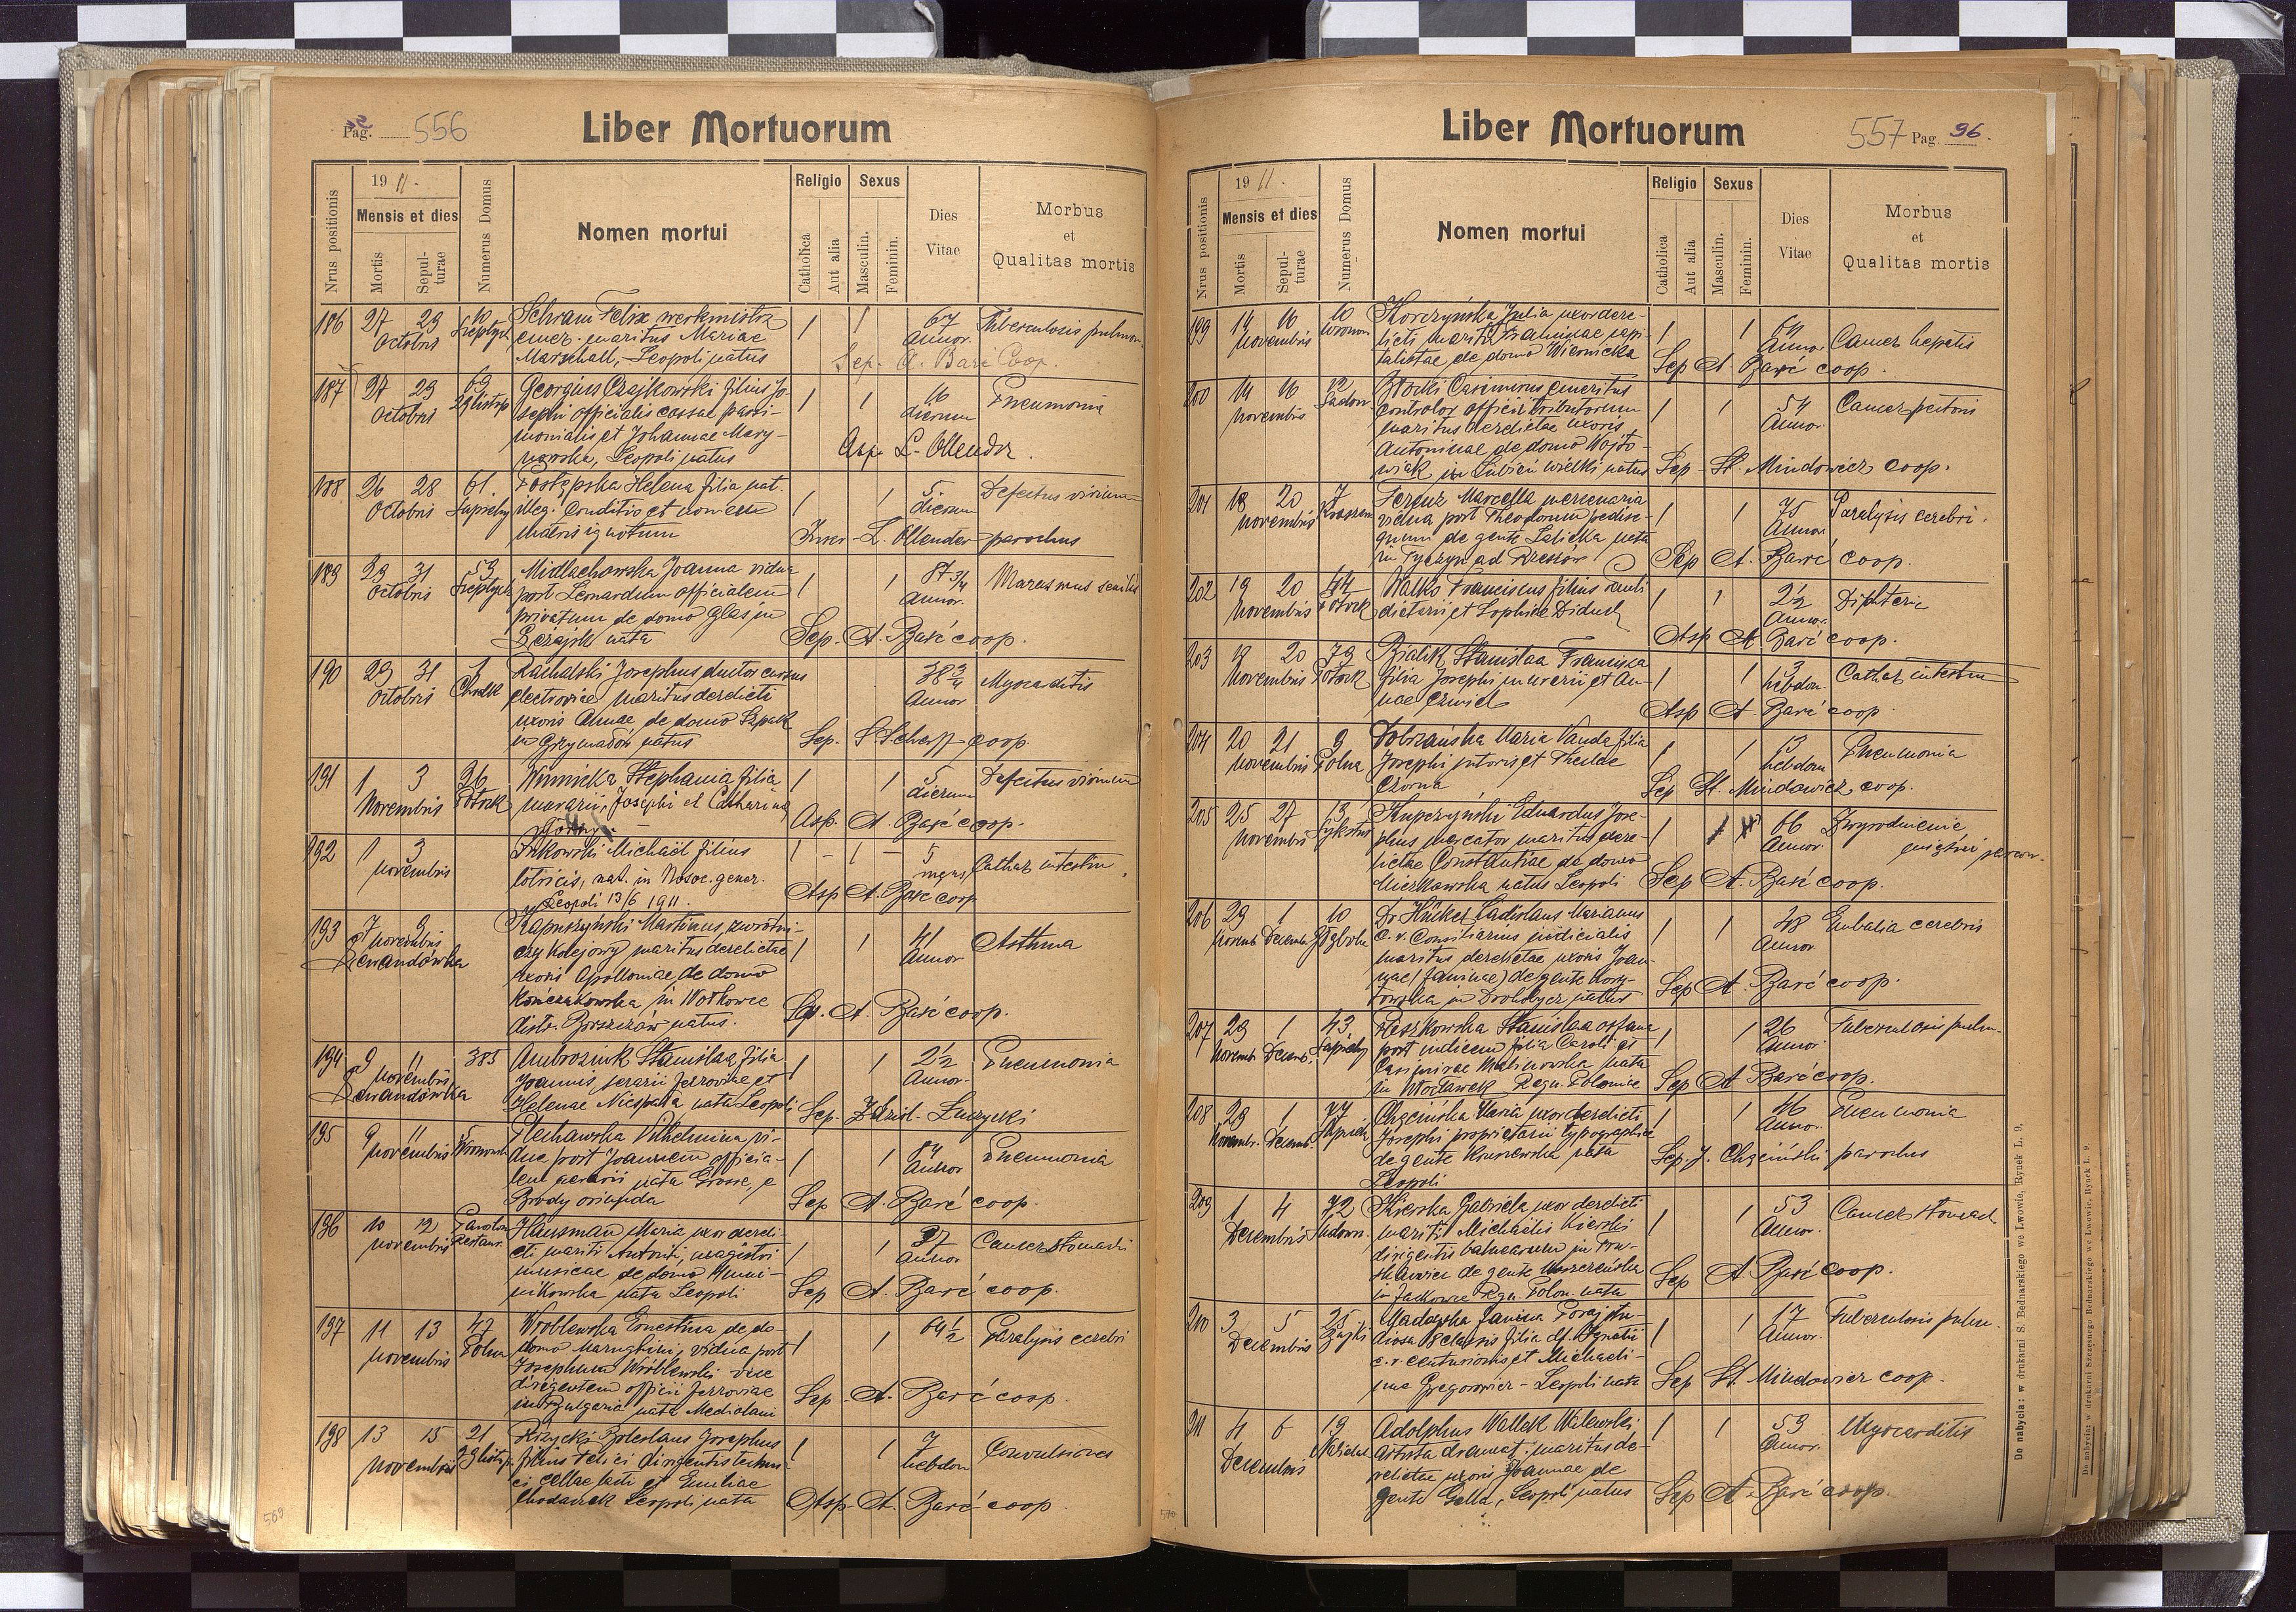 Pag. 556
Liber Mortuorum
Nrus positionis
19 11.
Mensis et dies
Mortis
Sepulturae
Numerus Domus
Nomen mortui
Religio
Catholica
Aut alia
Sexus
Masculin.
Feminin.
Dies Vitae
Morbus et Qualitas mortis
186 27 29 Octobris Schram Felix werkmistrz 1 1 67 Annor. Tuberculosis pulmon.
emer. maritus Mariae
Marschall, Leopoli natus
Sep. A. Barć Coop.
187 27 29 Octobris 69 29 listop Georgius Czajkowski filius Jo- 1 1 16 dierum Pneumonia
sephi officialis cassae parsi-
monialis et Johannae Mary-
nowska, Leopoli natus
Asp. L. Ollender
188 26 28 Octobris 61. Sapiehy Postępska Helena filia nat. 1 1 5 dierum Defectus virium
illeg. conditio et nomen
matris ignotum
L. Ollender parochus
189 29 31 Octobris 53 Midlachowska Joanna vidua 1 1 87 3/4 Annor. Marasmus senilis
post Leonardum officialem
privatum de domo Glas in
Leżajsk nata
Sep. A. Barć coop.
190 29 31 Octobris 1 Josephus ductor currus 38 3/4 Annor Myocarditis
electrovice maritus derelicti
uxoris Annae de domo Szpak
in Grzymałów natus
Sep. S. Scherff coop.
191 1 3 Novembris 26 Potock Winnicka Stephania filia 1 1 5 dierum Defectus virium
murarii, Josephi et Catharina
Górny
Asp. A. Barć coop.
192 1 3 Novembris Michael filius 1 - 1 - 5 mens. Cathar intestin.
lotricis, nat. in Nosoc. gener.
Leopoli 13/6 1911.
Asp A. Barć coop
193 7 9 Novembris Lewandówka Kapuszynski Martinus, zwrotni- 1 1 41 Annor Asthma
czy kolejowy maritus derelictae
uxoris Apolloniae de domo
Kończakowska, in Wołkowce
distr. Borszczów natus.
Sep. A. Barć coop.
194 9 11 Novembris Lewandówka 385 Ambroziak Stanislaa filia 1 1 2 1/2 Annor. Pneumonia
Joannis, ferroviae et
Helenae nata Leopoli
Sep. Zdzisł. Luzycki
195 9 11 Novembris 5 Plechawska Vilhelmina vi- 1 1 84 Annor Pneumonia
dua post Joannem officia-
lem aerarii nata Grosse, e
Brody oriunda
Sep A. Barć coop.
196 10 12 Novembris Hausman Maria uxor dereli- 1 1 37 Annor Cancer stomachi
cti mariti Antonii, magistri
musicae de domo
nata Leopoli
Sep A. Barć coop.
197 11 13 Novembris 47 Polna Wróblewska Ernestina de do- 1 1 64 1/2 Paralysis cerebri
domo vidua post
Josephum Wróblewski vice
dirigentem officii ferroviae
in Bulgaria nata Mediolani
Sep. A. Barć coop.
198 13 15 Novembris 21 29 listop. Rizycki Boleslaus Josephus 1 1 7 hebdom Convulsiones
filius Felici dirigentis
et Emiliae
Chodaczek Leopoli nata
Asp. A. Barć coop.
569
Liber Mortuorum
557 Pag. 96.
Nrus positionis
19 11.
Mensis et dies
Mortis
Sepulturae
Numerus Domus
Nomen mortui
Religio
Catholica
Aut alia
Sexus
Masculin.
Feminin.
Dies Vitae
Morbus et Qualitas mortis
199 14 16 Novembris 10 Korczyńska Julia uxor dere- 1 1 64 Annor. Cancer hepatis
licti mariti capi-
talistae de domo Wiernicka
Sep A. Barć coop.
200 14 16 Novembris 12 Casimirus emeritus 1 1 54 Annor. Cancer pectoris
controlor officii tributorum
maritus derelictae uxoris
Antoninae de domo Wojto-
wiak in Lubień wielki natus
Sep St. Mindowicz coop.
201 18 20 Novembris 7 Ferenz Marcella mercenaria 1 1 75 Annor. Paralysis cerebri.
vidua post Theodorum pedise-
quum de gente Salicka nata
in Tyczyn ad Rzeszów
Sep A. Barć coop.
202 19 20 Novembris 44 Potock Walko Franciscus filius Pauli 1 1 2 1/2 Annor. Diphteria
dietarii et Sophiae Diduch
Asp A. Barć coop.
203 18 20 Novembris 79 Potock Bialik Stanislaa Francisca 1 1 3 hebdom. Cathar intestin
filia Josephi murarii et An-
nae
Asp A. Barć coop
204 20 21 Novembris 9 Polna Dobrzańska Maria Vanda filia 1 1 13 hebdom Pneumonia
Josephi sutoris et Theclae
Czorna
Sep St. Mindowicz coop.
205 25 27 Novembris 13 Kupczyński Eduardus Jose- 1 1 66 Annor. Zwyrodnienie
phus mercator maritus dere-
lictae Constantiae de domo
Mierkowska natus Leopoli
Sep A. Barć coop.
206 29 1 Novemb. Decemb. 10 Dr Hücker Ladislaus Marianus 1 1 48 Annor. Embolia cerebri
c. r. Consiliarius judicialis
maritus derelictae uxoris Joan-
nae (Janinae) de gente Kory-
towska in Drohobycz natus
Sep A. Barć coop.
207 29 1 Novemb. Decemb. 43. Sapiehy Raszkowska Stanislaa 1 1 26 Annor. Tuberculosis pulm.
post filia Caroli et
Casimirae Malinowska nata
in Włocławek Regn. Poloniae
Sep A. Barć coop.
208 29 1 Novembr. Decemb. 77 Sapieh Chęcińska Maria uxor derelicti 1 1 46 Annor. Pneumonia
Josephi proprietarii typographiae
de gente Kruszewska nata
Leopoli
Sep J. Chęciński parochus
209 1 4 Decembris 72 Kierska Gabriela uxor derelicti 1 1 53 Annor. Cancer stomach
mariti Michaelis Kierski
dirigentis balnearum in Tru-
skawiec de gente
in Regn. Polon. nata
Sep A. Barć coop.
210 3 5 Decembris 25 Janina stu- 1 1 17 Annor. Tuberculosis pulm.
diosa filia df. Ignatii
c. r. centurionis et Michaeli-
nae Gregorowicz - Leopoli nata
Sep St. Mindowicz coop.
211 4 6 Decembris 19 Adolphus Wallek Walewski 1 1 59 Annor. Myocarditis
artista dramat. maritus de-
relictae uxoris Joannae de
gente Gella, Leopoli natus
Sep A. Barć coop.
570
Do nabycia: w drukarni S. Bednarskiego we Lwowie, Rynek L. 9.
Do nabycia: w drukarni Szczęsnego Bednarskiego we Lwowie, Rynek L. 9.